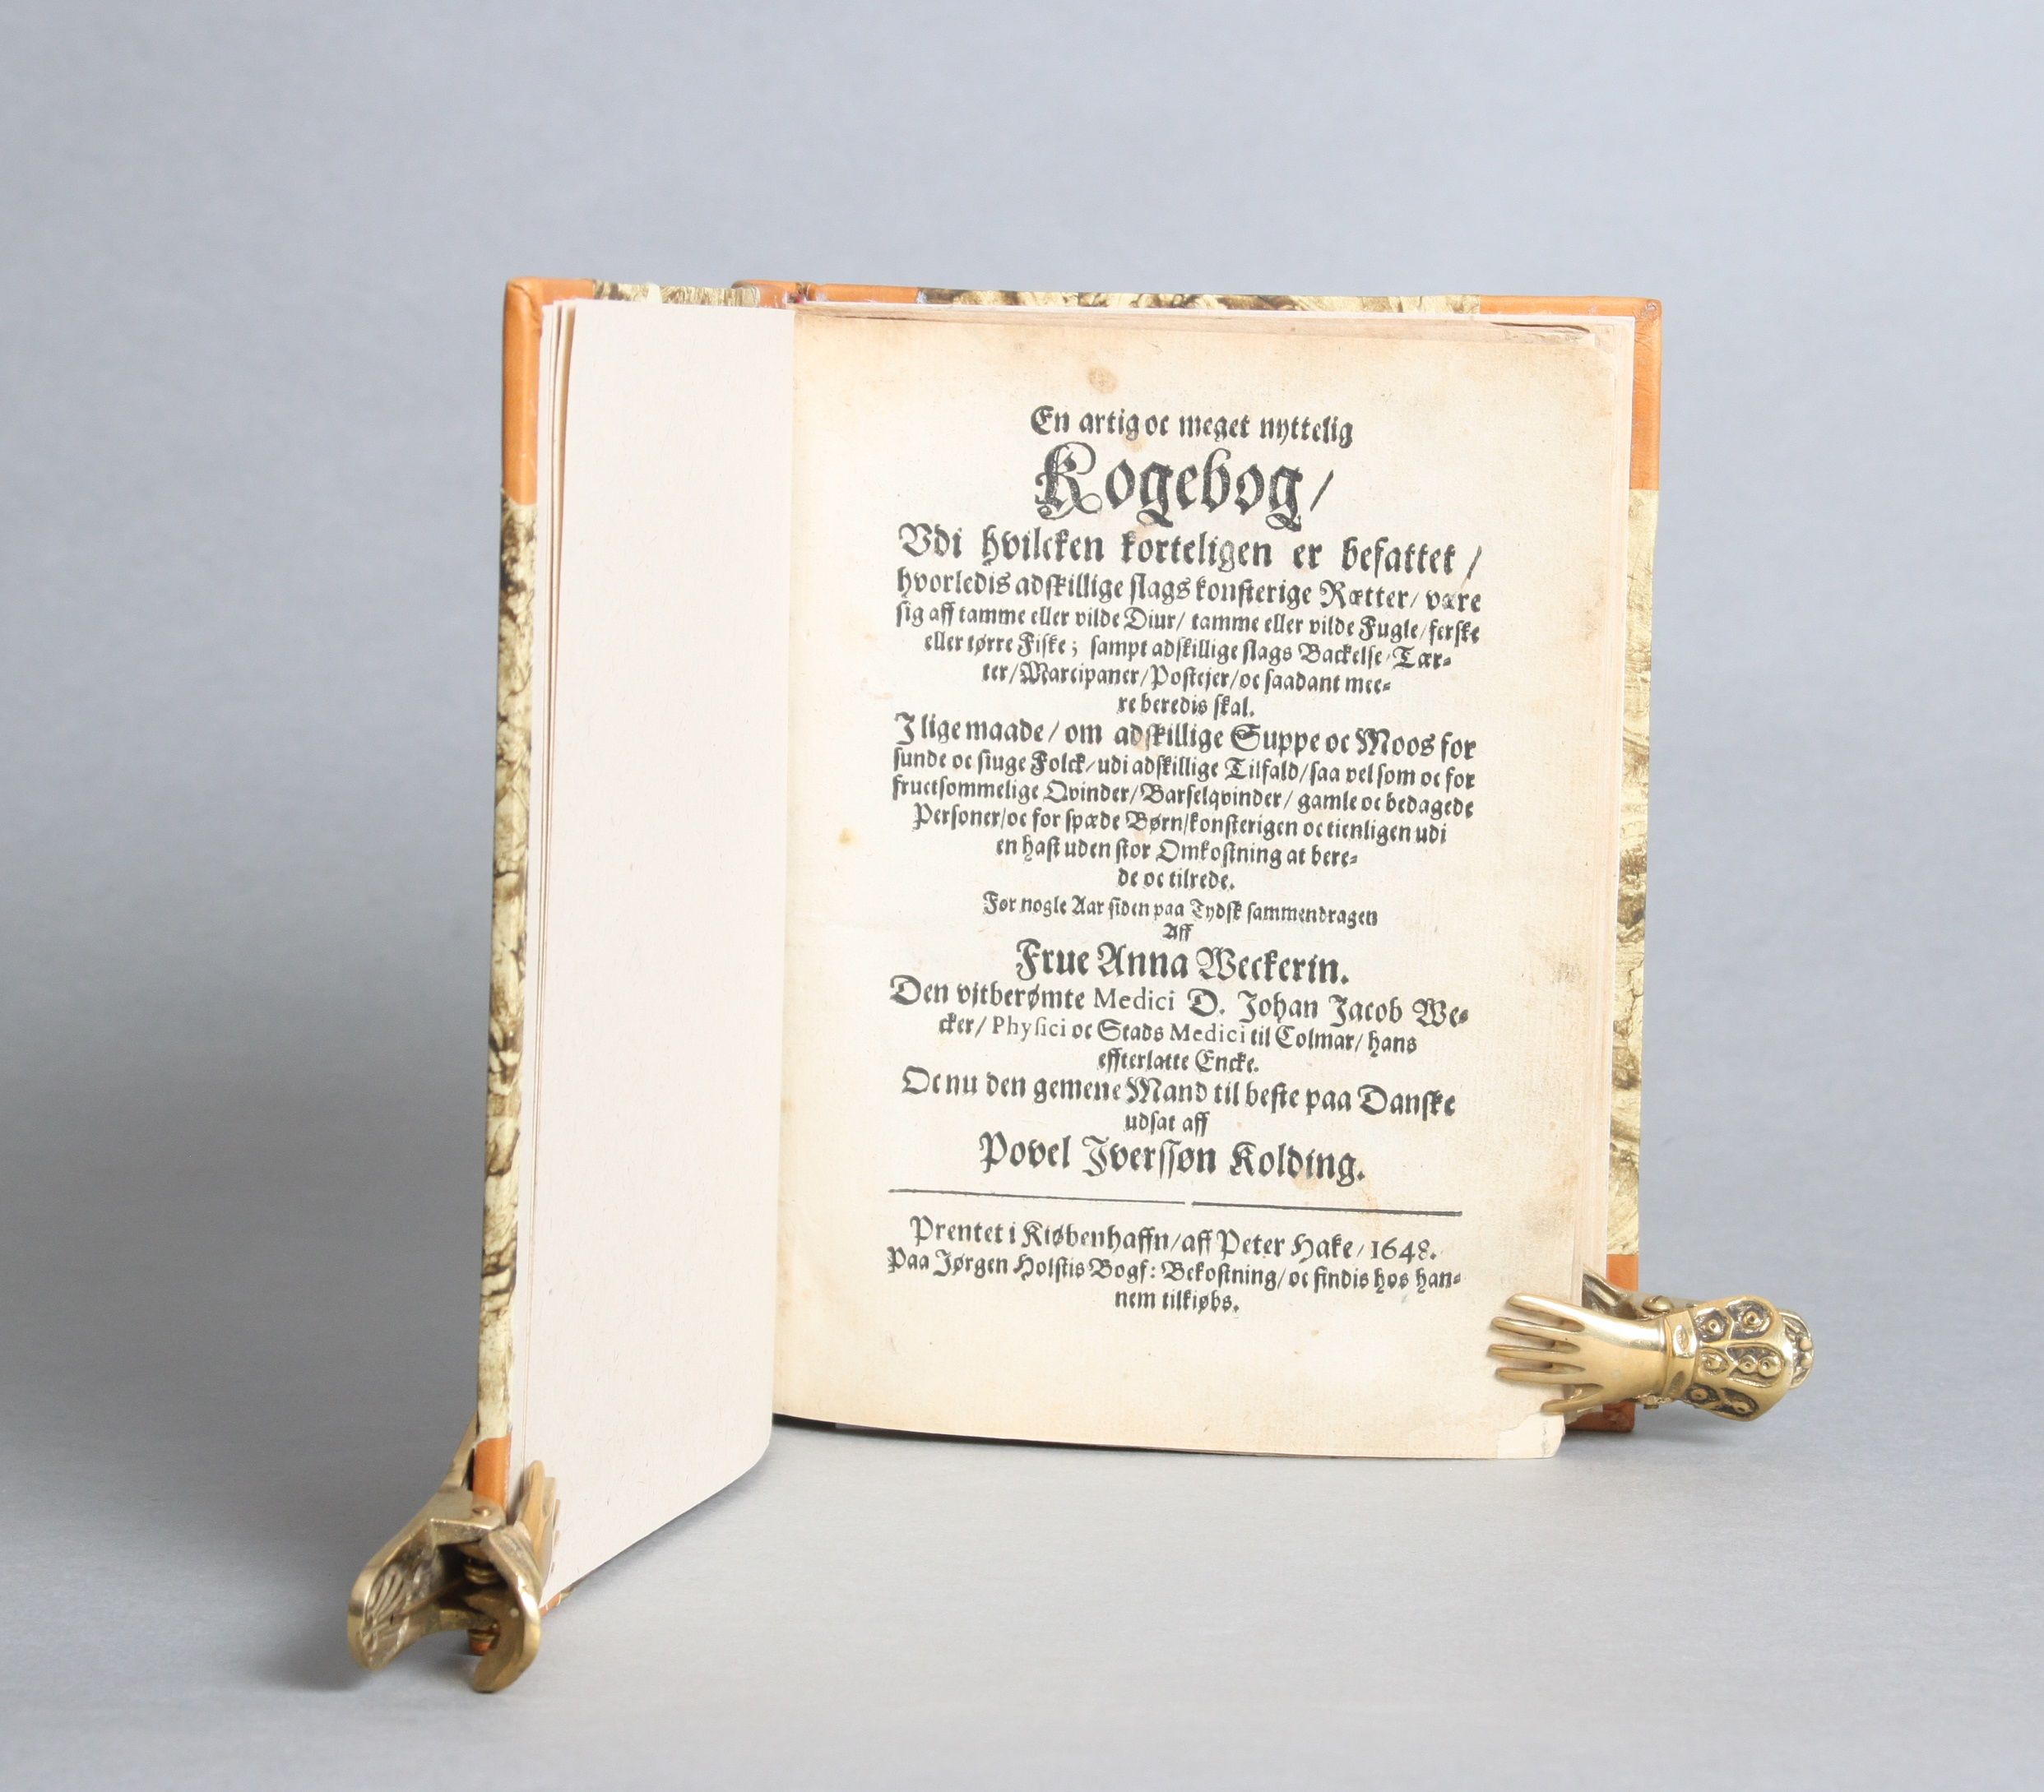 En artig oc meget nyttelig
Kogebog/
Vdi hvilcken korteligen er befattet/
hvorledis adskillige slags konsterige Rætter/ være
sig aff tamme eller vilde Diur/ tamme eller vilde Fugle/ ferske
eller tørre Fiske; sampt adskillige slags Backelse/ Tær-
ter/ Marcipaner/ Postejer/ oc saadant mee-
re beredis skal.
I lige maade/ om adskillige Suppe oc Moos for
sunde oc siuge Folck/ udi adskillige Tilfald/ saa vel som oc for
fructsommelige Qvinder/ Barselqvinder/ gamle oc bedagede
Personer/ oc for spæde Børn/ konsterigen oc tienligen udi
en hast uden stor Omkostning at bere-
de oc tilrede.
Før nogle Aar siden paa Tydsk sammendragen
Aff
Frue Anna Weckerin.
Den vjtberømte Medici D. Johan Jacob We-
cker/ Physici oc Stads Medici til Colmar/ hans
effterlatte Encke.
Oc nu den gemene Mand til beste paa Danske
udsat aff
Povel Jverssøn Kolding.
Prentet i Kiøbenhaffn/ aff Peter Hake/ 1648.
Paa Jørgen Holstis Bogf: Bekostning/ oc findis hos han-
nem tilkiøbs.